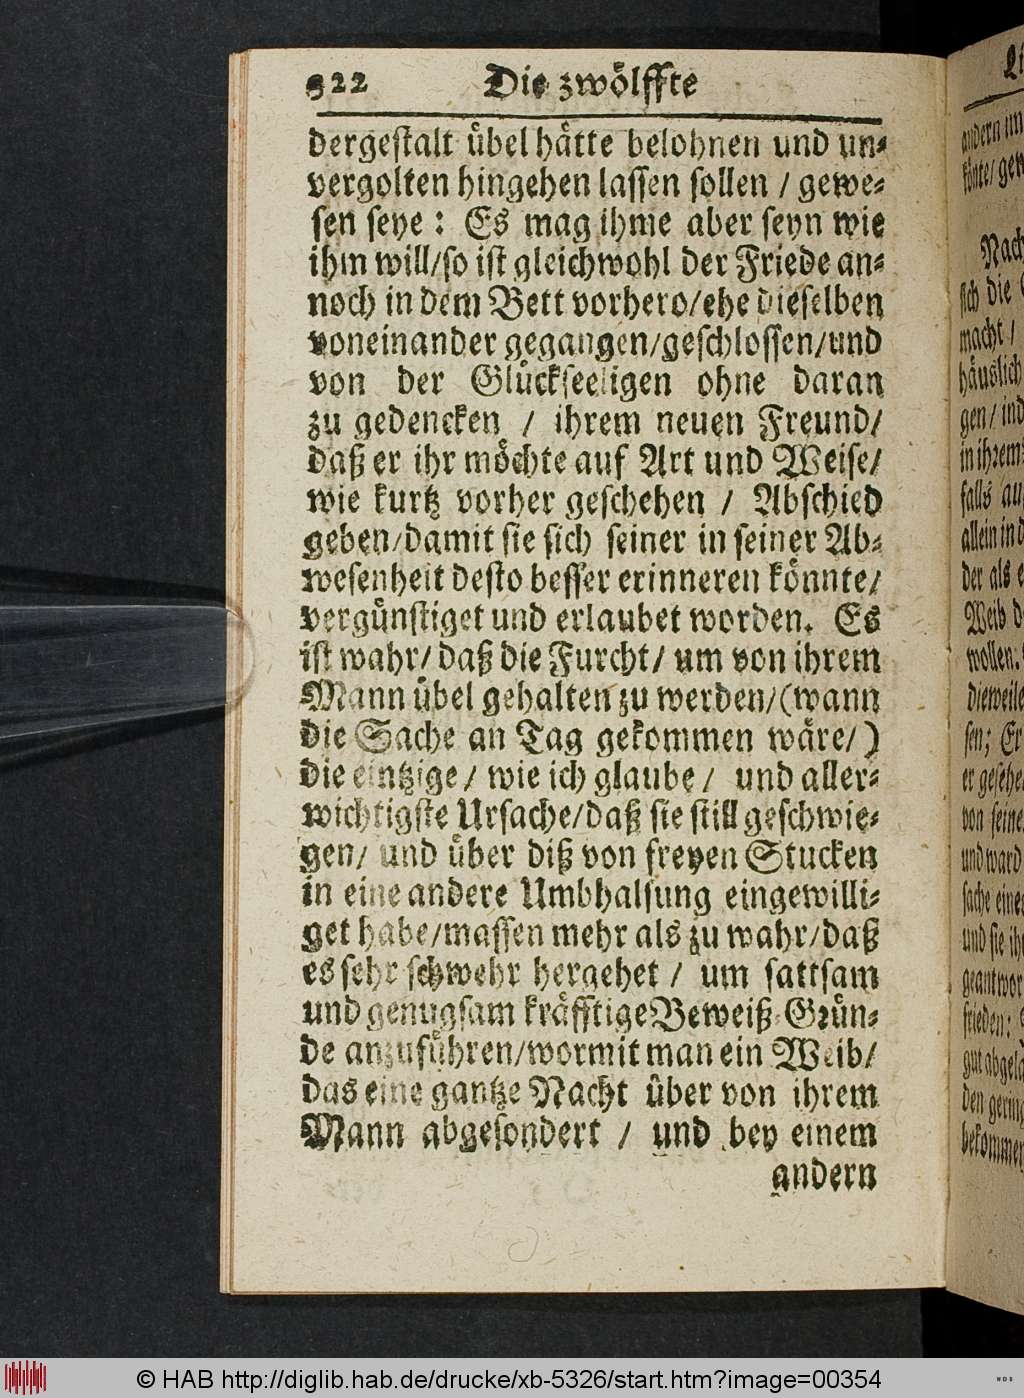 322 Die zwölffte
dergestalt übel hätte belohnen und un-
vergolten hingehen lassen sollen / gewe-
sen seye: Es mag ihme aber seyn wie
ihm will/so ist gleichwohl der Friede an-
noch in dem Bett vorhero/ehe dieselben
voneinander gegangen/geschlossen/und
von der Glückseeligen ohne daran
zu gedencken / ihrem neuen Freund/
daß er ihr möchte auf Art und Weise/
wie kurtz vorher geschehen / Abschied
geben/damit sie sich seiner in seiner Ab-
wesenheit desto besser erinneren könnte/
vergünstiget und erlaubet worden. Es
ist wahr/ daß die Furcht/ um von ihrem
Mann übel gehalten zu werden/(wann
die Sache an Tag gekommen wäre/)
die eintzige/ wie ich glaube/ und aller-
wichtigste Ursache/daß sie still geschwie-
gen/ und über diß von freyen Stucken
in eine andere Umbhalsung eingewilli-
get habe/massen mehr als zu wahr/daß
es sehr schwehr hergehet / um sattsam
und genugsam kräfftige Beweiß-Grün-
de anzuführen/wormit man ein Weib/
das eine gantze Nacht über von ihrem
Mann abgesondert / und bey einem
andern
andern
Nach
sich die
macht /
häuslich
gen/ ind
in ihrem
falls
allein in d
der als e
Weib d
wollen.
dieweile
sen; Er
er gesehe
von seine
und ward
sache eine
und sie ih
geantwor
frieden:
gut abgel
den gering
bekommen
© HAB http://diglib.hab.de/drucke/xb-5326/start.htm?image=00354